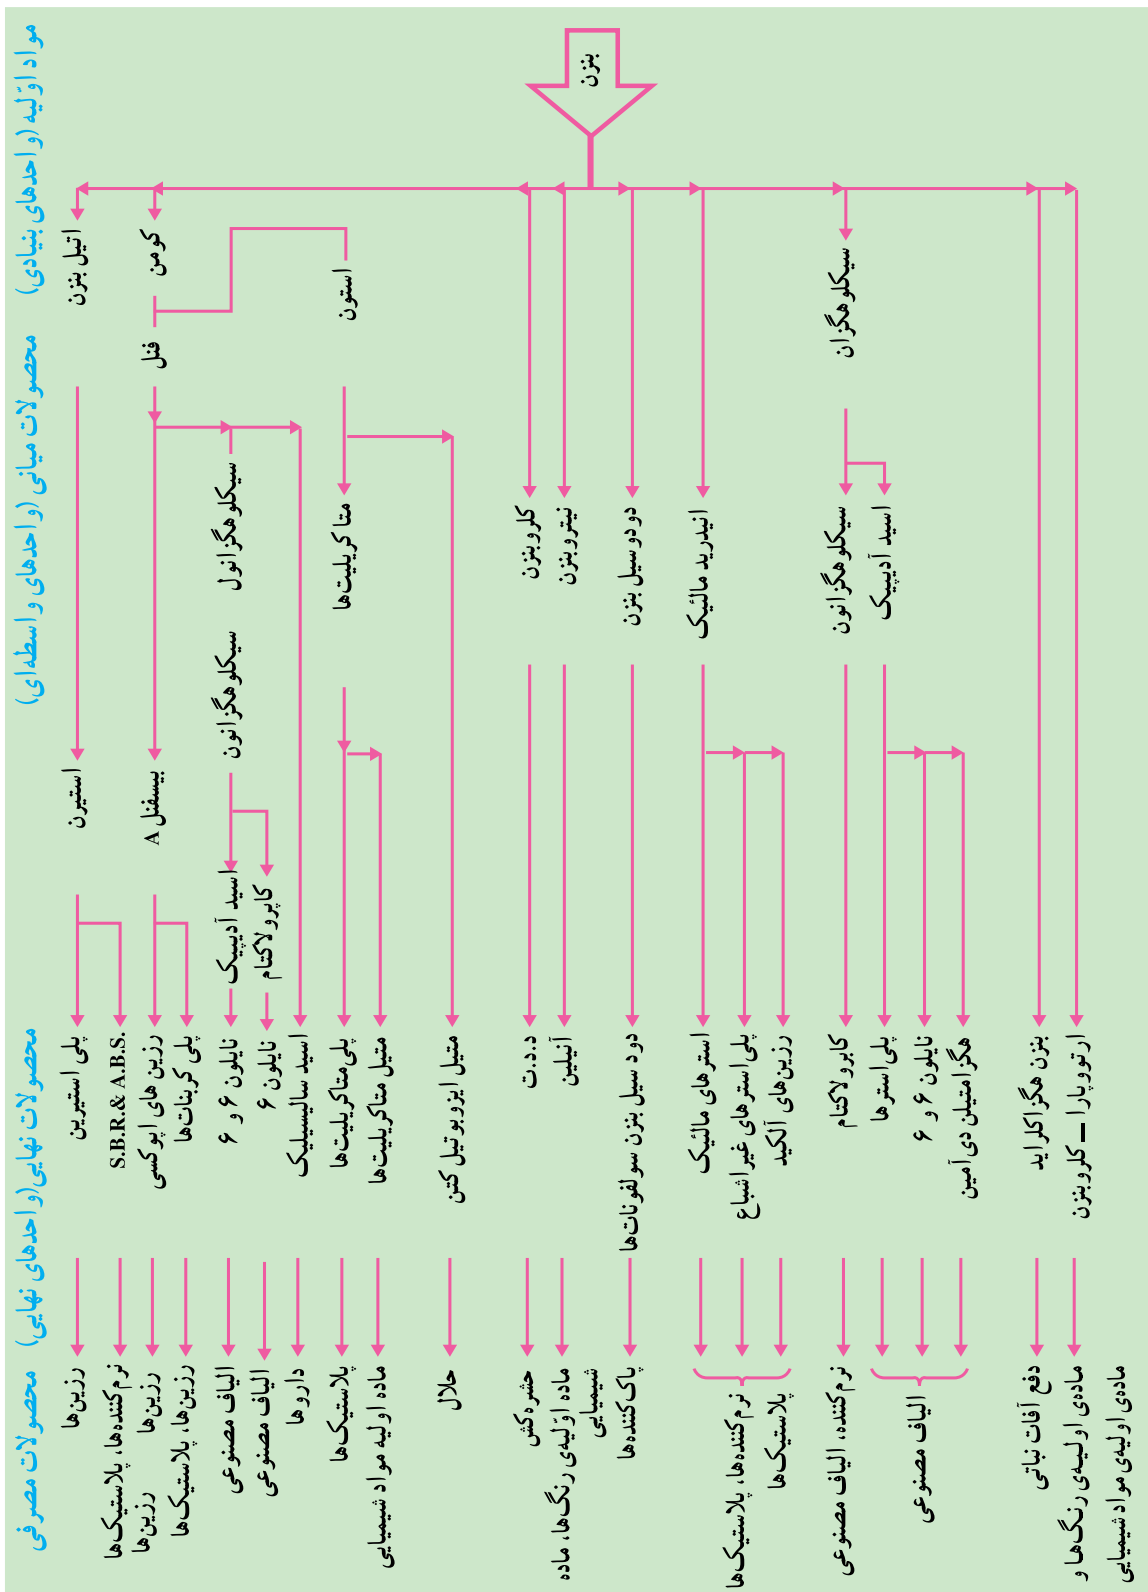 مواد اوّلیه (واحدهای بنیادی)
محصولات میانی (واحدهای واسطه‌ای)
محصولات نهایی(واحدهای نهایی)
محصولات مصرفی
بنزن
اتیل بنزن
کومن
استون
سیکلوهگزان
فنل
سیکلوهگزانول
متاکریلیت‌ها
کلروبنزن
نیتروبنزن
دودوسیل بنزن
انیدرید مالئیک
سیکلوهگزانون
اسید آدیپیک
سیکلوهگزانون
استیرن
بیسفنل A
اسید آدیپیک
کاپرولاکتام
پلی استیرین
S.B.R.& A.B.S.
رزین های اپوکسی
پلی کربنات‌ها
نایلون ۶ و ۶
نایلون ۶
اسید سالیسیلیک
پلی‌متاکریلیت‌ها
متیل متاکریلیت‌ها
متیل ایزوبوتیل کتن
د.د.ت
آنیلین
دود سیل بنزن سولفونات‌ها
استرهای مالئیک
پلی‌استرهای غیراشباع
رزین‌های آلکید
کاپرولاکتام
پلی‌استرها
نایلون ۶ و ۶
هگزامتیلن دی‌آمین
بنزن هگزاکلراید
ارتووپارا – کلروبنزن
رزین‌ها
نرم‌کننده‌ها، پلاستیک‌ها
رزین‌ها
رزین‌ها
رزین‌ها، پلاستیک‌ها
الیاف مصنوعی
الیاف مصنوعی
داروها
پلاستیک‌ها
ماده اولیه مواد شیمیایی
حلال
حشره‌کش
ماده اوّلیه‌ی رنگ‌ها، ماده
شیمیایی
پاک‌کننده‌ها
نرم‌کننده‌ها، پلاستیک‌ها
پلاستیک‌ها
نرم‌کننده، الیاف مصنوعی
الیاف مصنوعی
دفع آفات نباتی
ماده‌ی اولیه‌ی رنگ‌ها و
ماده‌ی اولیه‌ی مواد شیمیایی